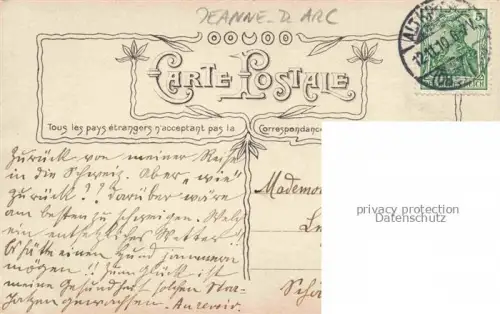 JEANNE-D ARC
CARTE POSTALE
Tous les pays étrangers n'acceptant pas la Correspondance
Zurück von meiner Reise
in die Schweiz. Aber „wie"
zurück?? Darüber wäre
am besten zu schweigen. Welch
ein entsetzliches Wetter!!
Es hätte einen Hund jammern
mögen!! Zum Glück ist
meine Gesundheit solchen Stra-
pazen gewachsen. Au revoir.
Mademoi
privacy protection
Datenschutz
12.11.10
5